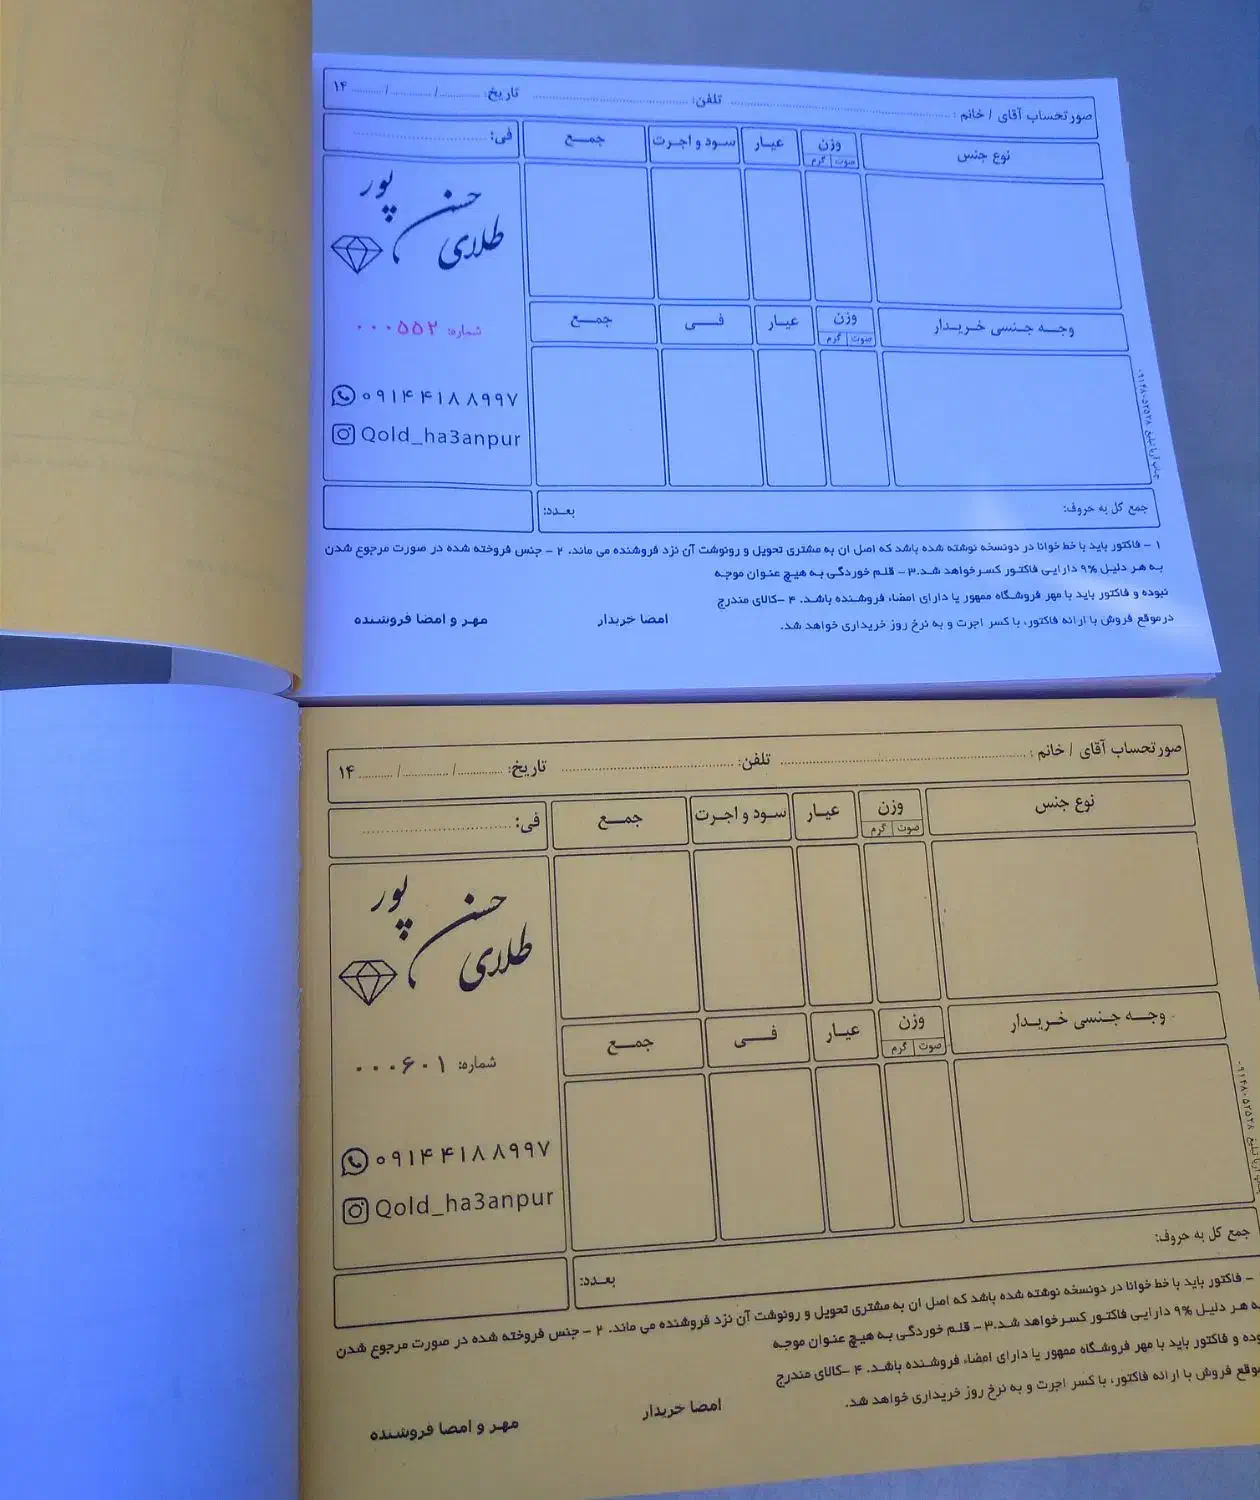 صورتحساب آقای / خانم : .......... تلفن: .......... تاریخ: ........../........../.......... ۱۴
نوع جنس وزن عیار سود و اجرت جمع فی: ..........
صوت گرم
طلای حسن پور
وجه جنسی خریدار وزن عیار فی جمع
صوت گرم
شماره: ۰۰۰۵۵۲
۰۹۱۴۴۱۸۸۹۹۷
Qold_ha3anpur
جمع کل به حروف: بعدد:
۱ - فاکتور باید با خط خوانا در دونسخه نوشته شده باشد که اصل ان به مشتری تحویل و رونوشت آن نزد فروشنده می ماند. ۲ - جنس فروخته شده در صورت مرجوع شدن
به هر دلیل ۹% دارایی فاکتور کسرخواهد شد.۳ - قلم خوردگی به هیچ عنوان موجه
نبوده و فاکتور باید با مهر فروشگاه ممهور یا دارای امضاء فروشنده باشد. ۴ -کالای مندرج
درموقع فروش با ارائه فاکتور، با کسر اجرت و به نرخ روز خریداری خواهد شد.
امضا خریدار مهر و امضا فروشنده
صورتحساب آقای / خانم : .......... تلفن: .......... تاریخ: ........../........../.......... ۱۴
نوع جنس وزن عیار سود و اجرت جمع فی: ..........
صوت گرم
طلای حسن پور
وجه جنسی خریدار وزن عیار فی جمع
صوت گرم
شماره: ۰۰۰۶۰۱
۰۹۱۴۴۱۸۸۹۹۷
Qold_ha3anpur
جمع کل به حروف: بعدد:
- فاکتور باید با خط خوانا در دونسخه نوشته شده باشد که اصل ان به مشتری تحویل و رونوشت آن نزد فروشنده می ماند. ۲ - جنس فروخته شده در صورت مرجوع شدن
هر دلیل ۹% دارایی فاکتور کسرخواهد شد.۳ - قلم خوردگی به هیچ عنوان موجه
وده و فاکتور باید با مهر فروشگاه ممهور یا دارای امضاء فروشنده باشد. ۴ -کالای مندرج
وقع فروش با ارائه فاکتور، با کسر اجرت و به نرخ روز خریداری خواهد شد.
امضا خریدار مهر و امضا فروشنده